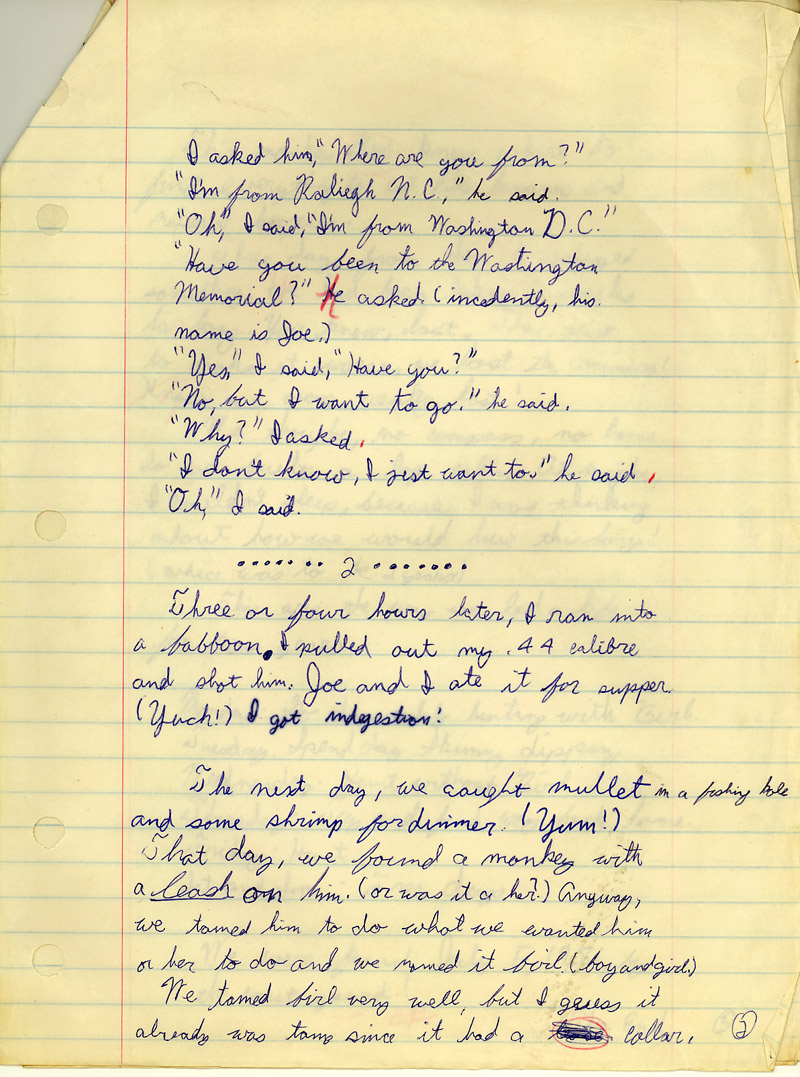 I asked him, "Where are you from?"
"I'm from Raliegh N.C.," he said.
"Oh," I said, "I'm from Washington D.C."
"Have you been to the Washington
Memorial?" He asked. (incedently, his
name is Joe.)
"Yes," I said, "Have you?"
"No, but I want to go." he said.
"Why?" I asked.
"I don't know, I just want to." he said.
"Oh," I said.
....... 2 .......
Three or four hours later, I ran into
a babboon. I pulled out my .44 calibre
and shot him. Joe and I ate it for supper.
(Yuch!) I got indgestion!
The next day, we caught mullet in a fishing hole
and some shrimp for dinner. (Yum!)
That day, we found a monkey with
a leash on him. (or was it a her?) Anyway,
we tamed him to do what we wanted him
or her to do and we named it birl. (boy and girl.)
We tamed birl very well, but I guess it
already was tame since it had a collar.
5